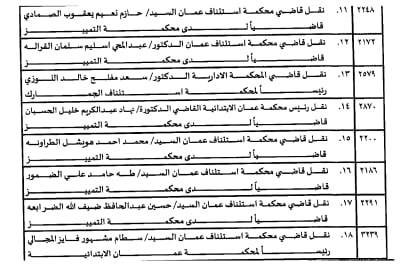 ٢٢٤٨ .١١ نقل قاضي محكمة استئناف عمان السيد/ حازم نعيم يعقوب الصمادي
قاضياً لدى محكمة التمييز
٢١٧٢ .١٢ نقل قاضي محكمة استئناف عمان الدكتور/ عبدالمحي اسليم سلمان القراله
قاضياً لدى محكمة التمييز
٢٥٧٩ .١٣ نقل قاضي المحكمة الادارية الدكتور/ سعد مفلح خالد اللوزي
رئيساً لمحكمة استئناف الجمارك
٢٨٧٠ .١٤ نقل رئيس محكمة عمان الابتدائية القاضي الدكتورة/ نهاد عبدالكريم خليل الحسبان
قاضياً لدى محكمة التمييز
٢٢٠٠ .١٥ نقل قاضي محكمة استئناف عمان السيد/ محمد احمد هويشل الطراونه
قاضياً لدى محكمة التمييز
٢١٨٦ .١٦ نقل قاضي محكمة استئناف عمان السيد/ طه حامد علي الضمور
قاضياً لدى محكمة التمييز
٢٢٩١ .١٧ نقل قاضي محكمة استئناف عمان السيد/ حسين عبدالحافظ ضيف الله الضرابعه
قاضياً لدى محكمة التمييز
٣٢٣٩ .١٨ نقل قاضي محكمة استئناف عمان السيد/ سطام مشهور فايز المجالي
رئيساً لمحكمة عمان الابتدائية